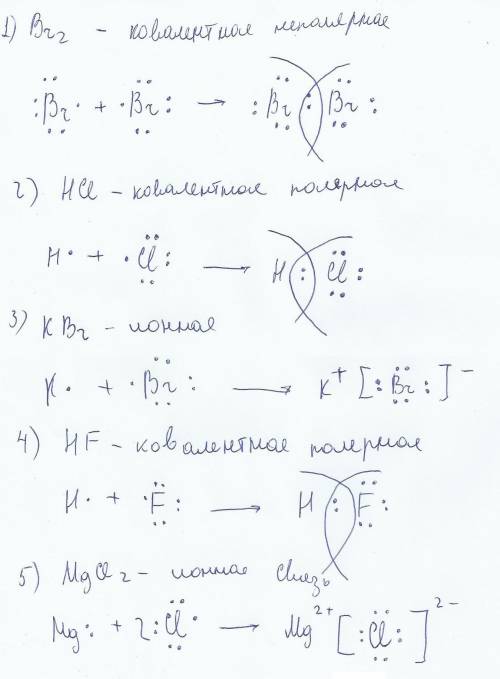 1) Br₂ – ковалентное неполярное
:Br· + ·Br: → :Br:Br:
2) HCl – ковалентная полярная
H· + ·Cl: → H:Cl:
3) KBr – ионная
K· + ·Br: → K⁺ [:Br:]⁻
4) HF – ковалентное полерное
H· + ·F: → H:F:
5) MgCl₂ – ионная связь
Mg: + 2:Cl· → Mg²⁺ [:Cl:]²⁻